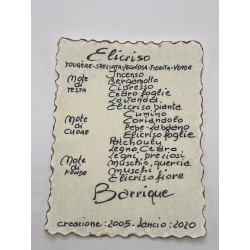 Elicriso
FOUGÈRE-SPEZIATA-LEGNOSA-FIORITA-VERDE
Note di TESTA
Incenso
Bergamotto
Cipresso
Cedro foglie
Lavanda
Elicriso pianta
Note di CUORE
Cumino
Coriandolo
Pepe-Labdano
Elicriso foglie
Patchouly
Note di FONDO
Legno Cedro
Legni preziosi
Muschio quercia
Muschi
Elicriso fiore
Barrique
creazione:2005-lancio:2020